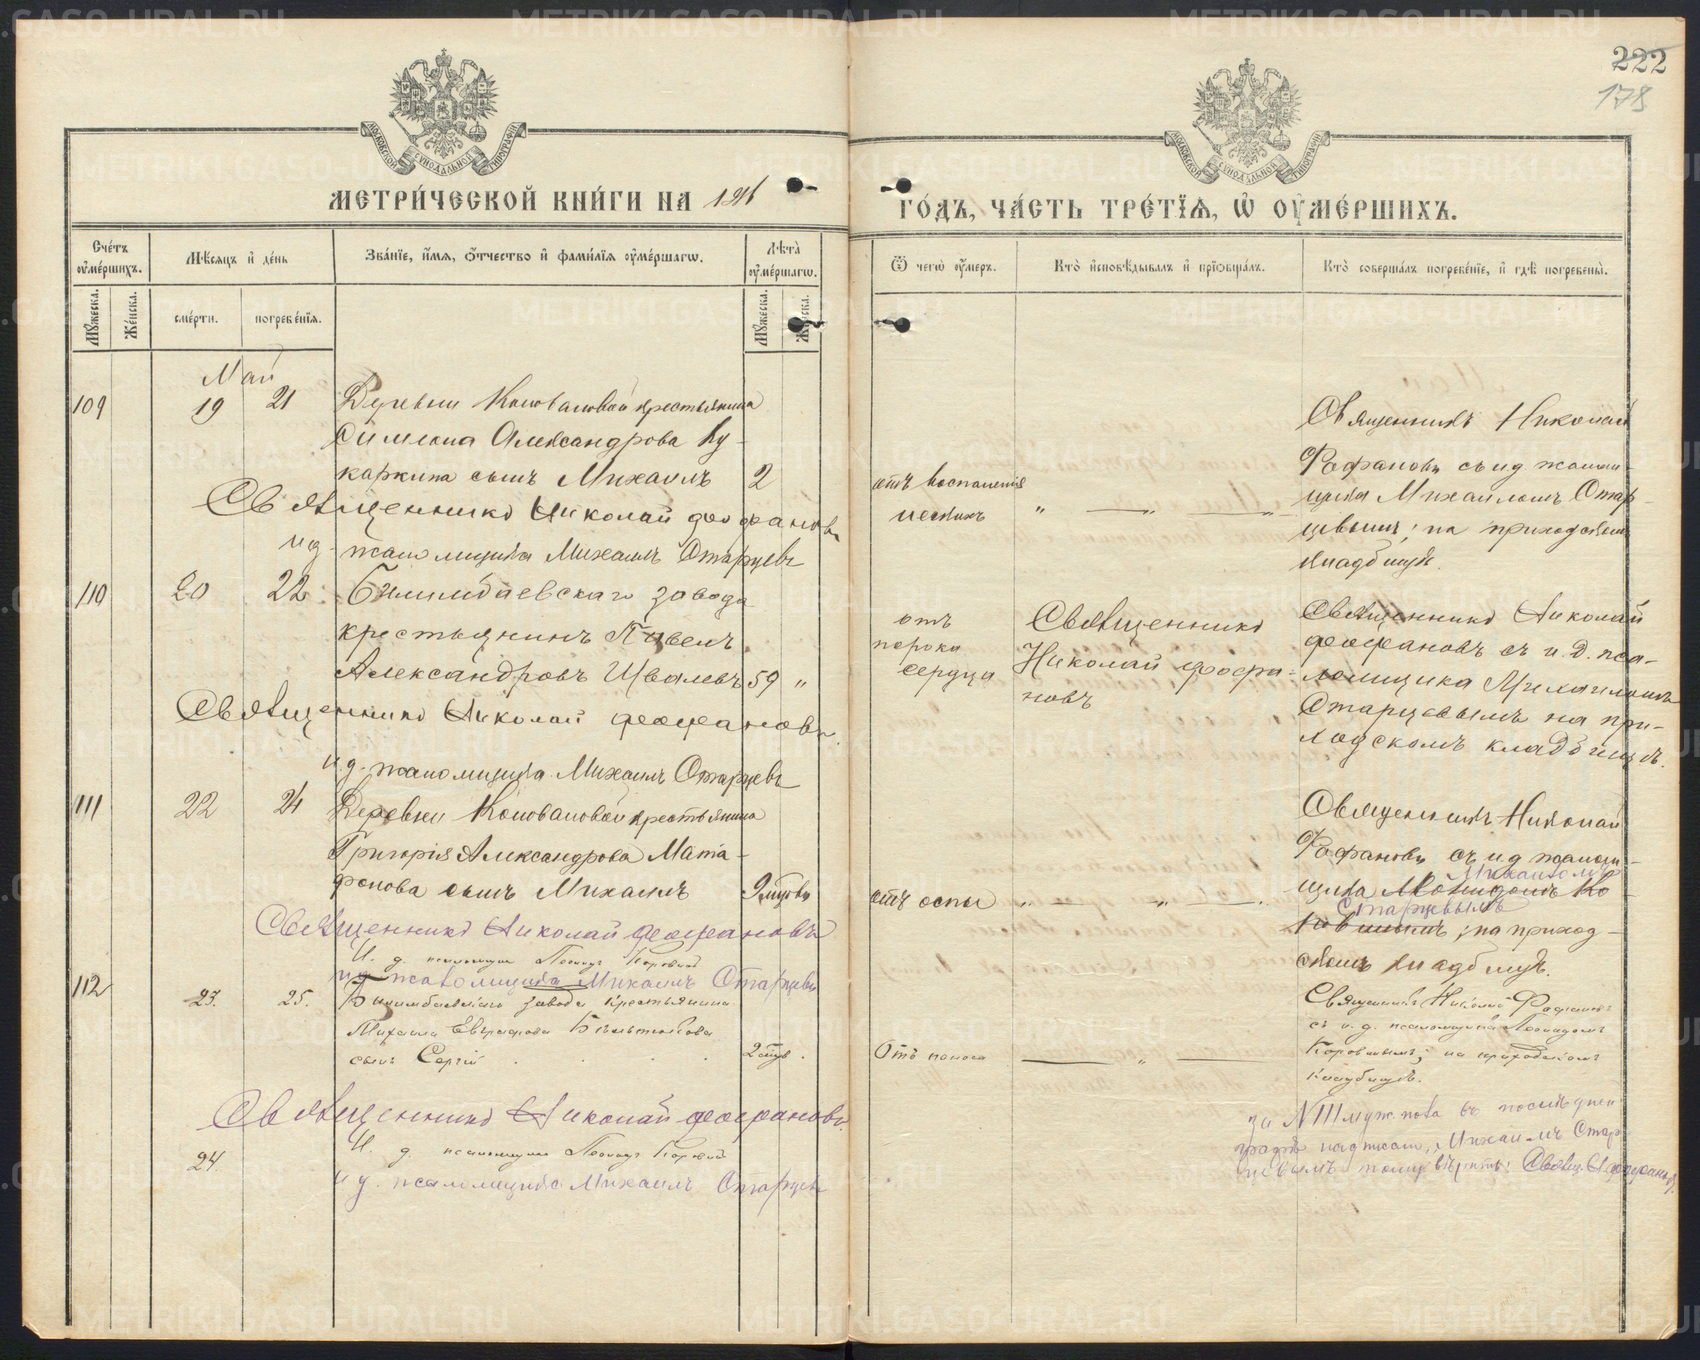 222
178
МОСКОВСКОЙ СѴНОДАЛЬНОЙ ТИПОГРАФІИ
МОСКОВСКОЙ СѴНОДАЛЬНОЙ ТИПОГРАФІИ
МЕТРИ́ЧЕСКОЙ КНИ́ГИ НА
ГО́ДЪ, ЧА́СТЬ ТРЕ́ТІЯ, Ѿ ОУМЕ́РШИХЪ.
Сче́тъ оуме́ршихъ.
Мѣ́сяцъ и҆ де́нь
Зва́нїе, и҆́мѧ, ѻ҆́тчество и҆ фамѝлїѧ оуме́ршагѡ.
Лѣ́та оуме́ршагѡ.
Мꙋ́жеска.
Же́нска.
сме́рти.
погребе́нїѧ.
Мꙋ́жеска.
Же́нска.
Ѿ чегѡ̀ оу҆́меръ.
Кто̀ и҆сповѣ́дывалъ и҆ прїѡбща́лъ.
Кто̀ соверша́лъ погребе́нїе, и҆ гдѣ̀ погребены̀.
Май
109 19 21 Деревни Коноваловой крестьянина
Симеона Александрова Ку-
каркина сынъ Михаилъ 2
отъ воспаления
легкихъ
Священникъ Николай
Фофановъ съ и д псалом-
щика Михаиломъ Стар-
цевымъ; на приходском
кладбищѣ.
Священникъ Николай Феофановъ
и д псаломщика Михаилъ Старцевъ
110 20 22 Билимбаевскаго завода
крестьянинъ Павелъ
Александровъ Шваревъ 59 "
отъ
порока
сердца
Священникъ
Николай Феофа-
новъ
Священникъ Николай
Феофановъ съ и. д. пса-
ломщика Михаиломъ
Старцевымъ на при-
ходскомъ кладбищѣ.
Священникъ Николай Феофановъ
и. д. псаломщика Михаилъ Старцевъ
111 22 24 Деревни Коноваловой крестьянина
Григорія Александрова Мата-
фонова сынъ Михаилъ 9 мѣсяцовъ
отъ оспы
Священникъ Николай
Фофановъ съ и д псалом-
щика Леонидомъ Ко-
Михаиломъ
Старцевымъ
ровинымъ; на приход-
скомъ кладбищѣ.
Священникъ Николай Феофановъ
И. д. псаломщика Леонидъ Коровинъ
и д псаломщика Михаилъ Старцевъ
112 23. 25. Билимбаевскаго завода крестьянина
Михаила Евграфова
сынъ Сергій
Отъ поноса
Священникъ Николай Фофановъ
съ и. д. псаломщика Леонидомъ
Коровинымъ; на приходскомъ
кладбищѣ.
Священникъ Николай Феофановъ
И. д. псаломщика Леонидъ Коровинъ
24.
и д. псаломщика Михаилъ Старцевъ
за № 111 муж пола въ послѣдней
графѣ надписано, Михаиломъ Стар-
цевымъ тому вѣрить: Священ. Н. Феофановъ.